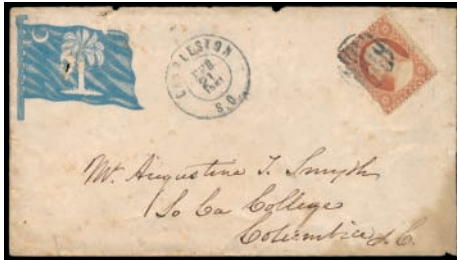 CHARLESTON
S.C.
FEB
21
Mr. Augustine T. Smyth
So Ca College
Columbia S.C.